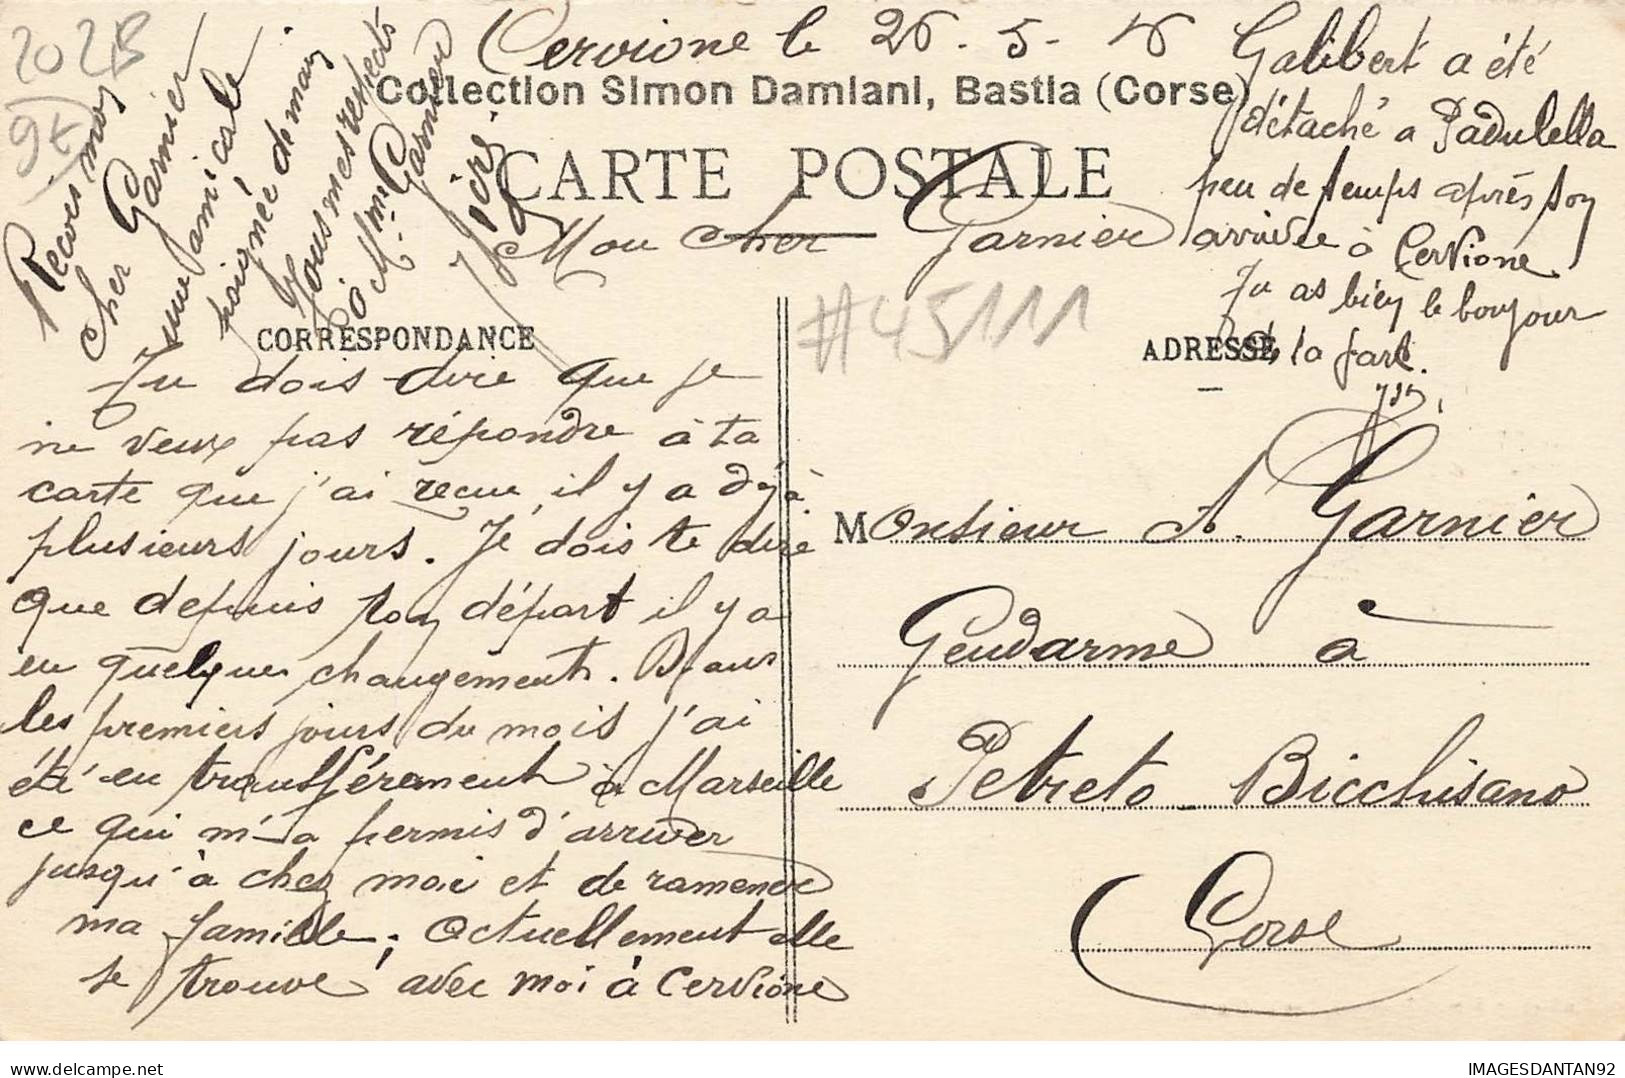 Cervione le 26 - 5 - 16
Collection Simon Damiani, Bastia (Corse)
CARTE POSTALE
Mon cher Garnier
CORRESPONDANCE
Tu dois dire que je
ne veux pas répondre à ta
carte que j'ai reçue il y a déjà
plusieurs jours. Je dois te dire
que depuis ton départ il y a
eu quelques changements. Dans
les premiers jours du mois j'ai
été en transfèrement à Marseille
ce qui m'a permis d'arriver
jusqu'à chez moi et de ramener
ma famille; Actuellement elle
se trouve avec moi à Cervione
Galibert a été
détaché a Padulella
peu de temps après son
arrivée à Cervione
Tu as bien le bonjour
de la part.
Reçois mon
cher Garnier
une amicale
poignée de main
Tous mes respects
à Mme Garnier
ADRESSE
Monsieur A. Garnier
Gendarme à
Petreto-Bicchisano
Corse
202B
9t
#45111
IMAGESDANTAN92